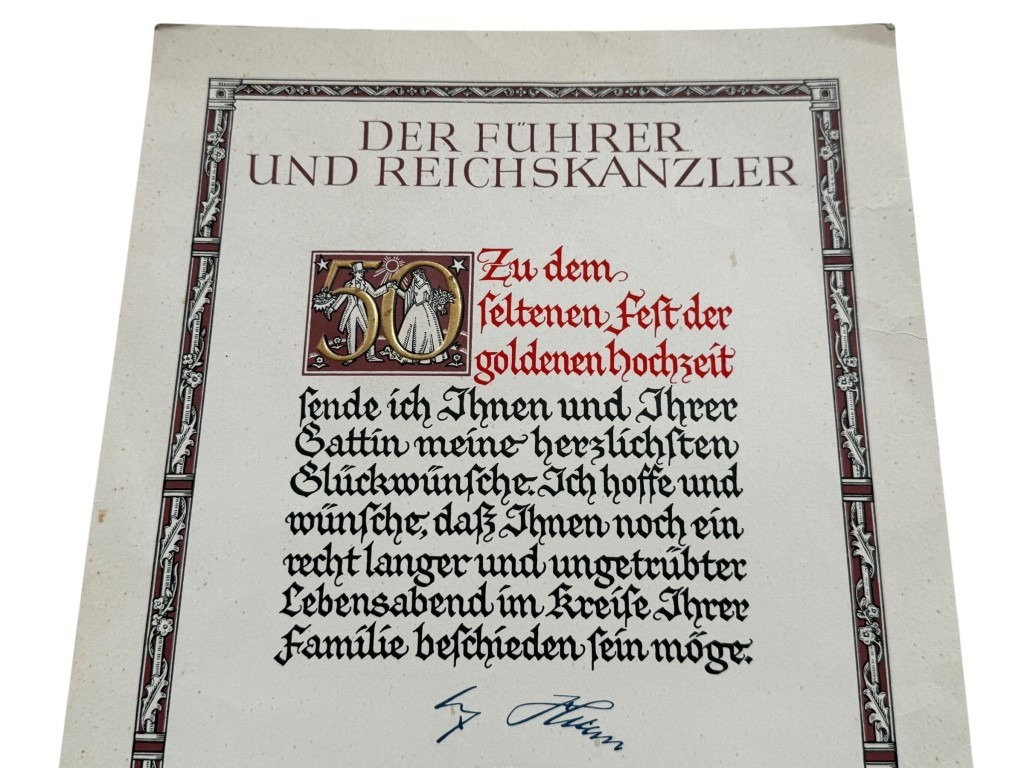 DER FÜHRER
UND REICHSKANZLER
50
Zu dem
seltenen Fest der
goldenen Hochzeit
sende ich Ihnen und Ihrer
Gattin meine herzlichsten
Glückwünsche. Ich hoffe und
wünsche, daß Ihnen noch ein
recht langer und ungetrübter
Lebensabend im Kreise Ihrer
Familie beschieden sein möge.